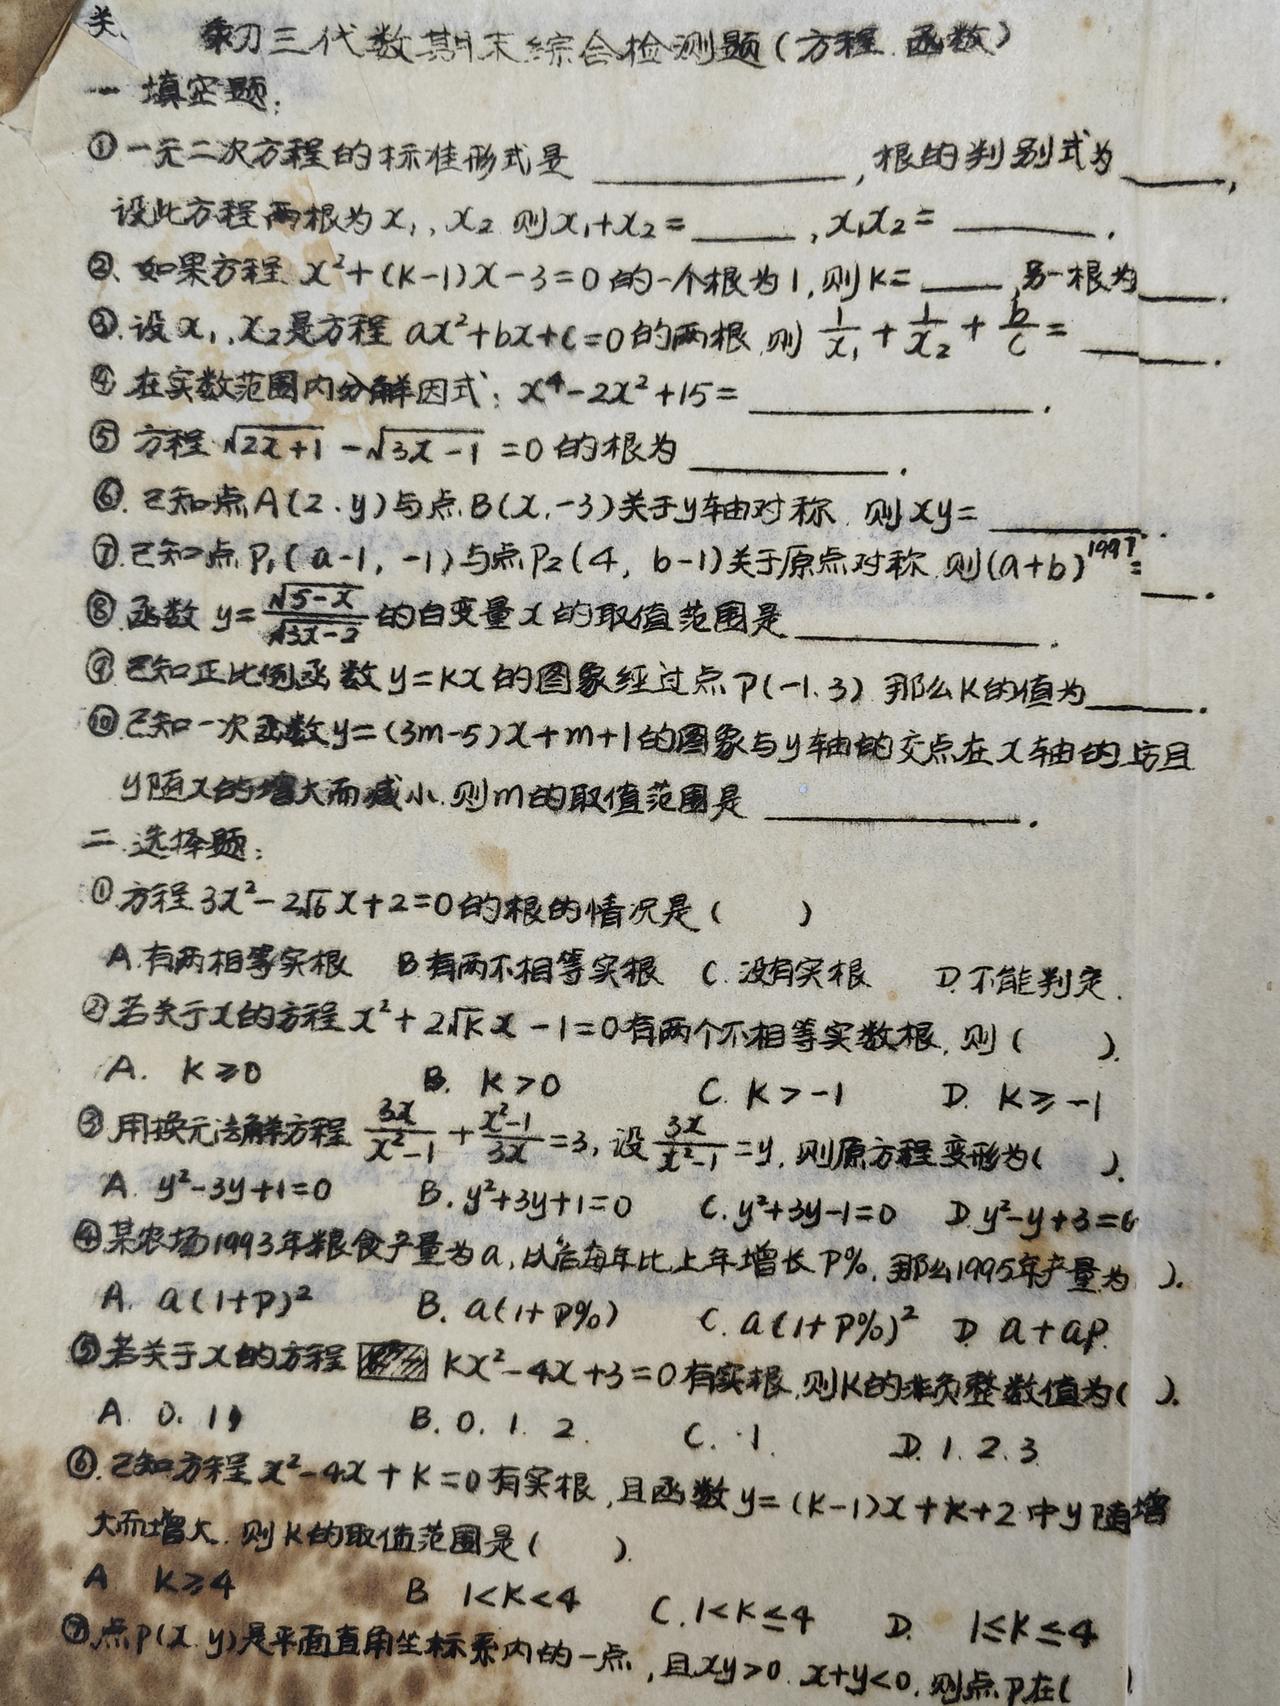 关
初三代数期末综合检测题(方程.函数)
一 填空题:
①一元二次方程的标准形式是 ________,根的判别式为____,
设此方程两根为x₁、x₂ 则x₁+x₂=____,x₁x₂=____.
②、如果方程 x²+(k-1)x-3=0的一个根为1,则k=____ 另一根为____.
③.设x₁、x₂是方程 ax²+bx+c=0的两根,则 1/x₁+1/x₂+b/c=____.
④在实数范围内分解因式: x⁴-2x²+15=________.
⑤方程√(2x+1)-√(3x-1)=0的根为________.
⑥.已知点A(2.y)与点B(x,-3)关于y轴对称.则xy=____.
⑦.已知点P₁(a-1,-1)与点P₂(4,b-1)关于原点对称,则(a+b)¹⁹⁹⁷=____.
⑧.函数 y=√(5-x)/√(3x-2)的自变量x的取值范围是________.
⑨.已知正比例函数y=kx的图象经过点P(-1.3) 那么k的值为____.
⑩.已知一次函数y=(3m-5)x+m+1的图象与y轴的交点在x轴的上方且
y随x的增大而减小.则m的取值范围是________.
二.选择题:
①.方程3x²-2√6x+2=0的根的情况是( )
A.有两相等实根 B有两不相等实根 C.没有实根 D.不能判定.
②若关于x的方程x²+2√k x-1=0有两个不相等实数根,则( ).
A. k≥0 B. k>0 C. k>-1 D. k≥-1
③用换元法解方程 3x/(x²-1)+(x²-1)/3x=3,设3x/(x²-1)=y,则原方程变形为( ).
A. y²-3y+1=0 B. y²+3y+1=0 C. y²+3y-1=0 D.y²-y+3=0
④某农场1993年粮食产量为a,以后每年比上年增长P%,那么1995年产量为 ).
A. a(1+P)² B. a(1+P%) C. a(1+P%)² D. a+aP.
⑤若关于x的方程 kx²-4x+3=0有实根,则k的非负整数值为( ).
A. 0. 1 B. 0. 1. 2. C. 1. D. 1. 2. 3.
⑥.已知方程x²-4x+k=0有实根,且函数y=(k-1)x+k+2中y随增
大而增大.则k的取值范围是( ).
A k≥4 B 1<k<4 C. 1<k≤4 D. 1≤k≤4
⑦.点P(x.y)是平面直角坐标系内的一点,且xy>0.x+y<0.则点P在( )